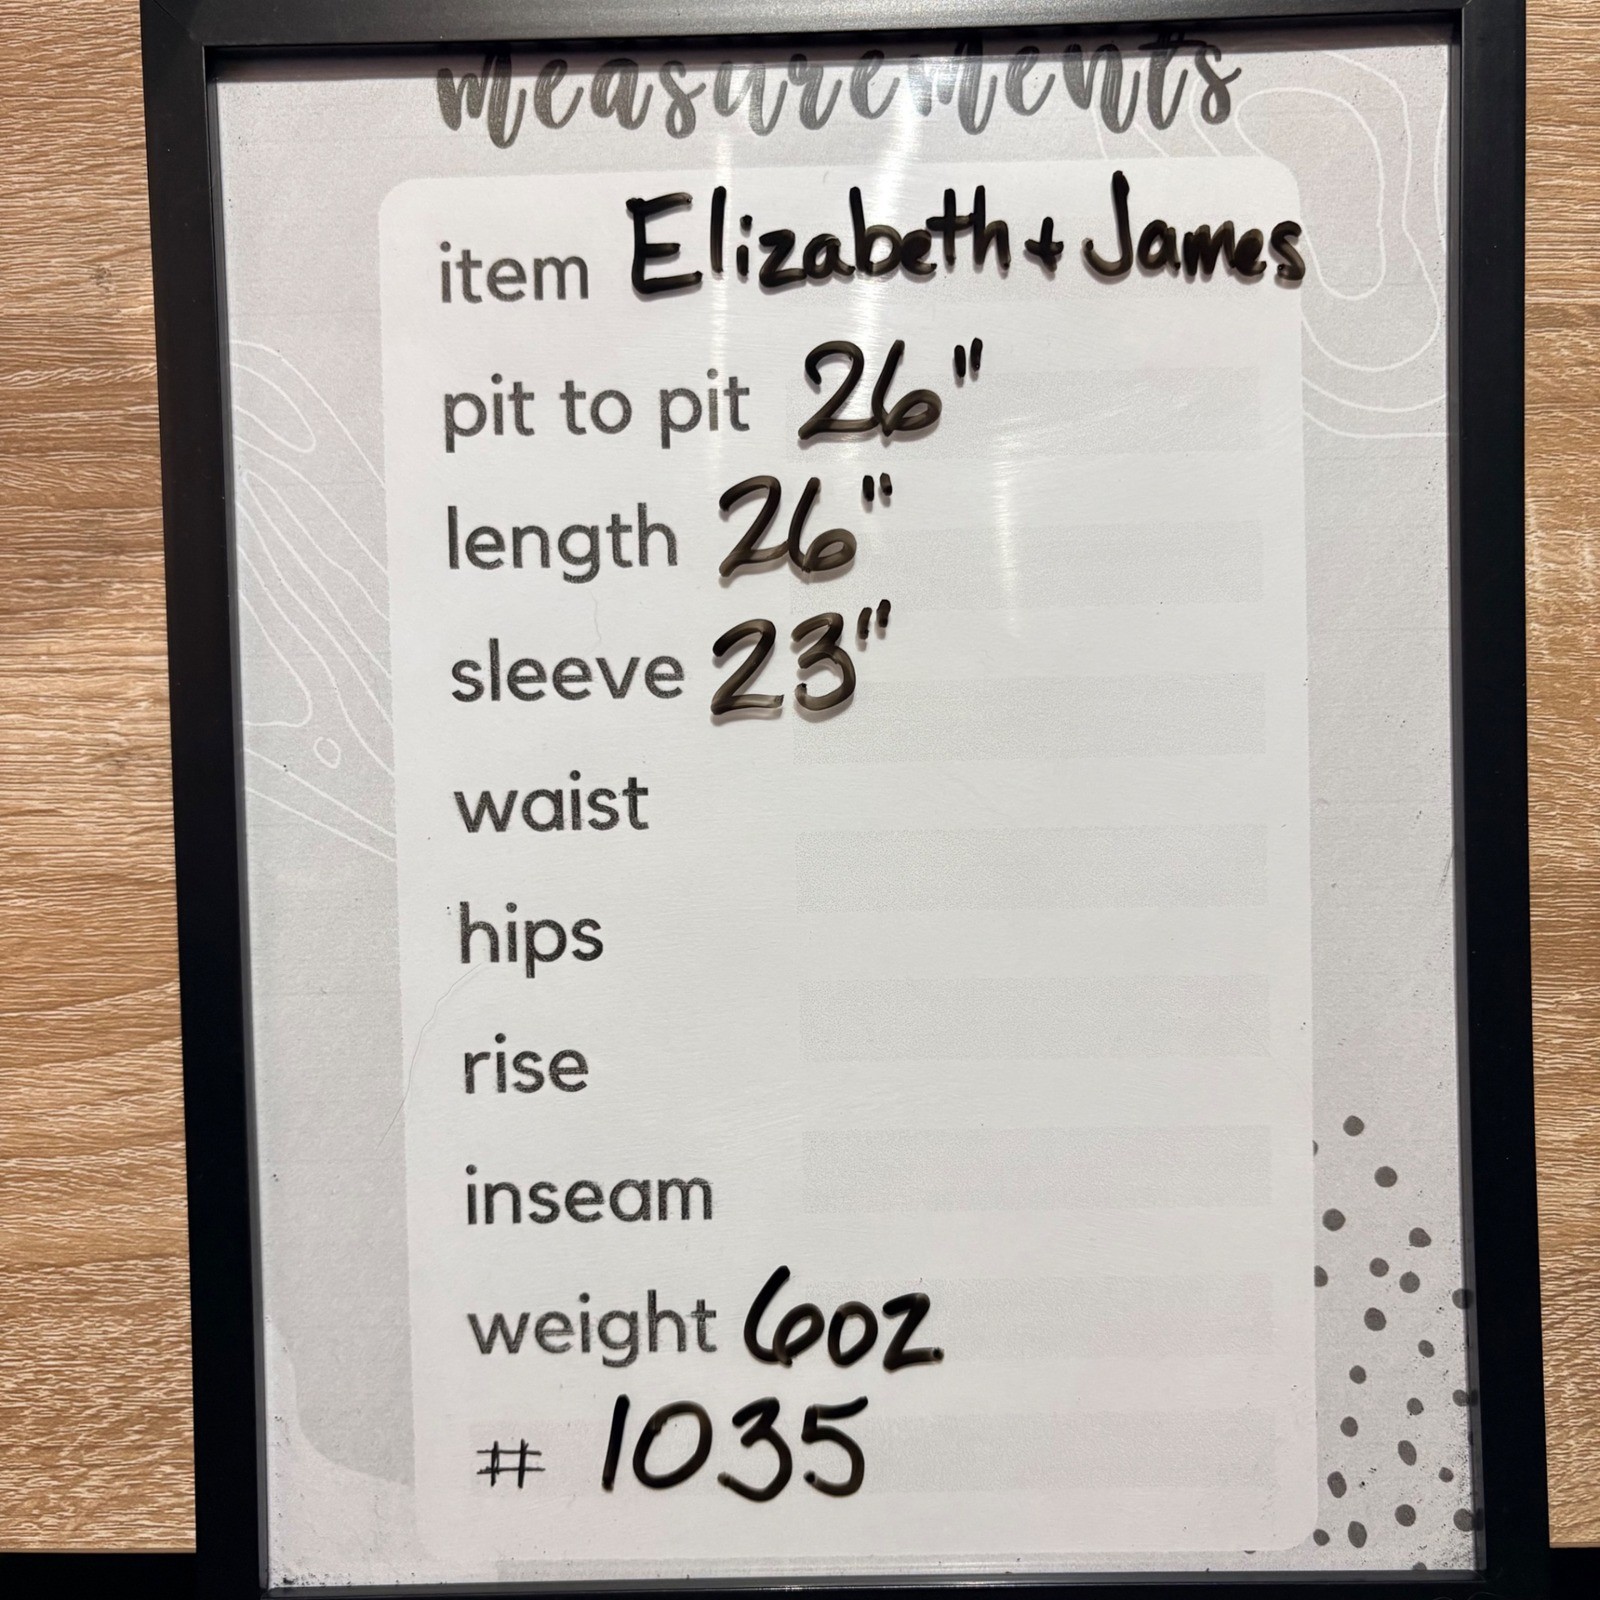 measurements
item Elizabeth + James
pit to pit 26"
length 26"
sleeve 23"
waist
hips
rise
inseam
weight 6oz
# 1035